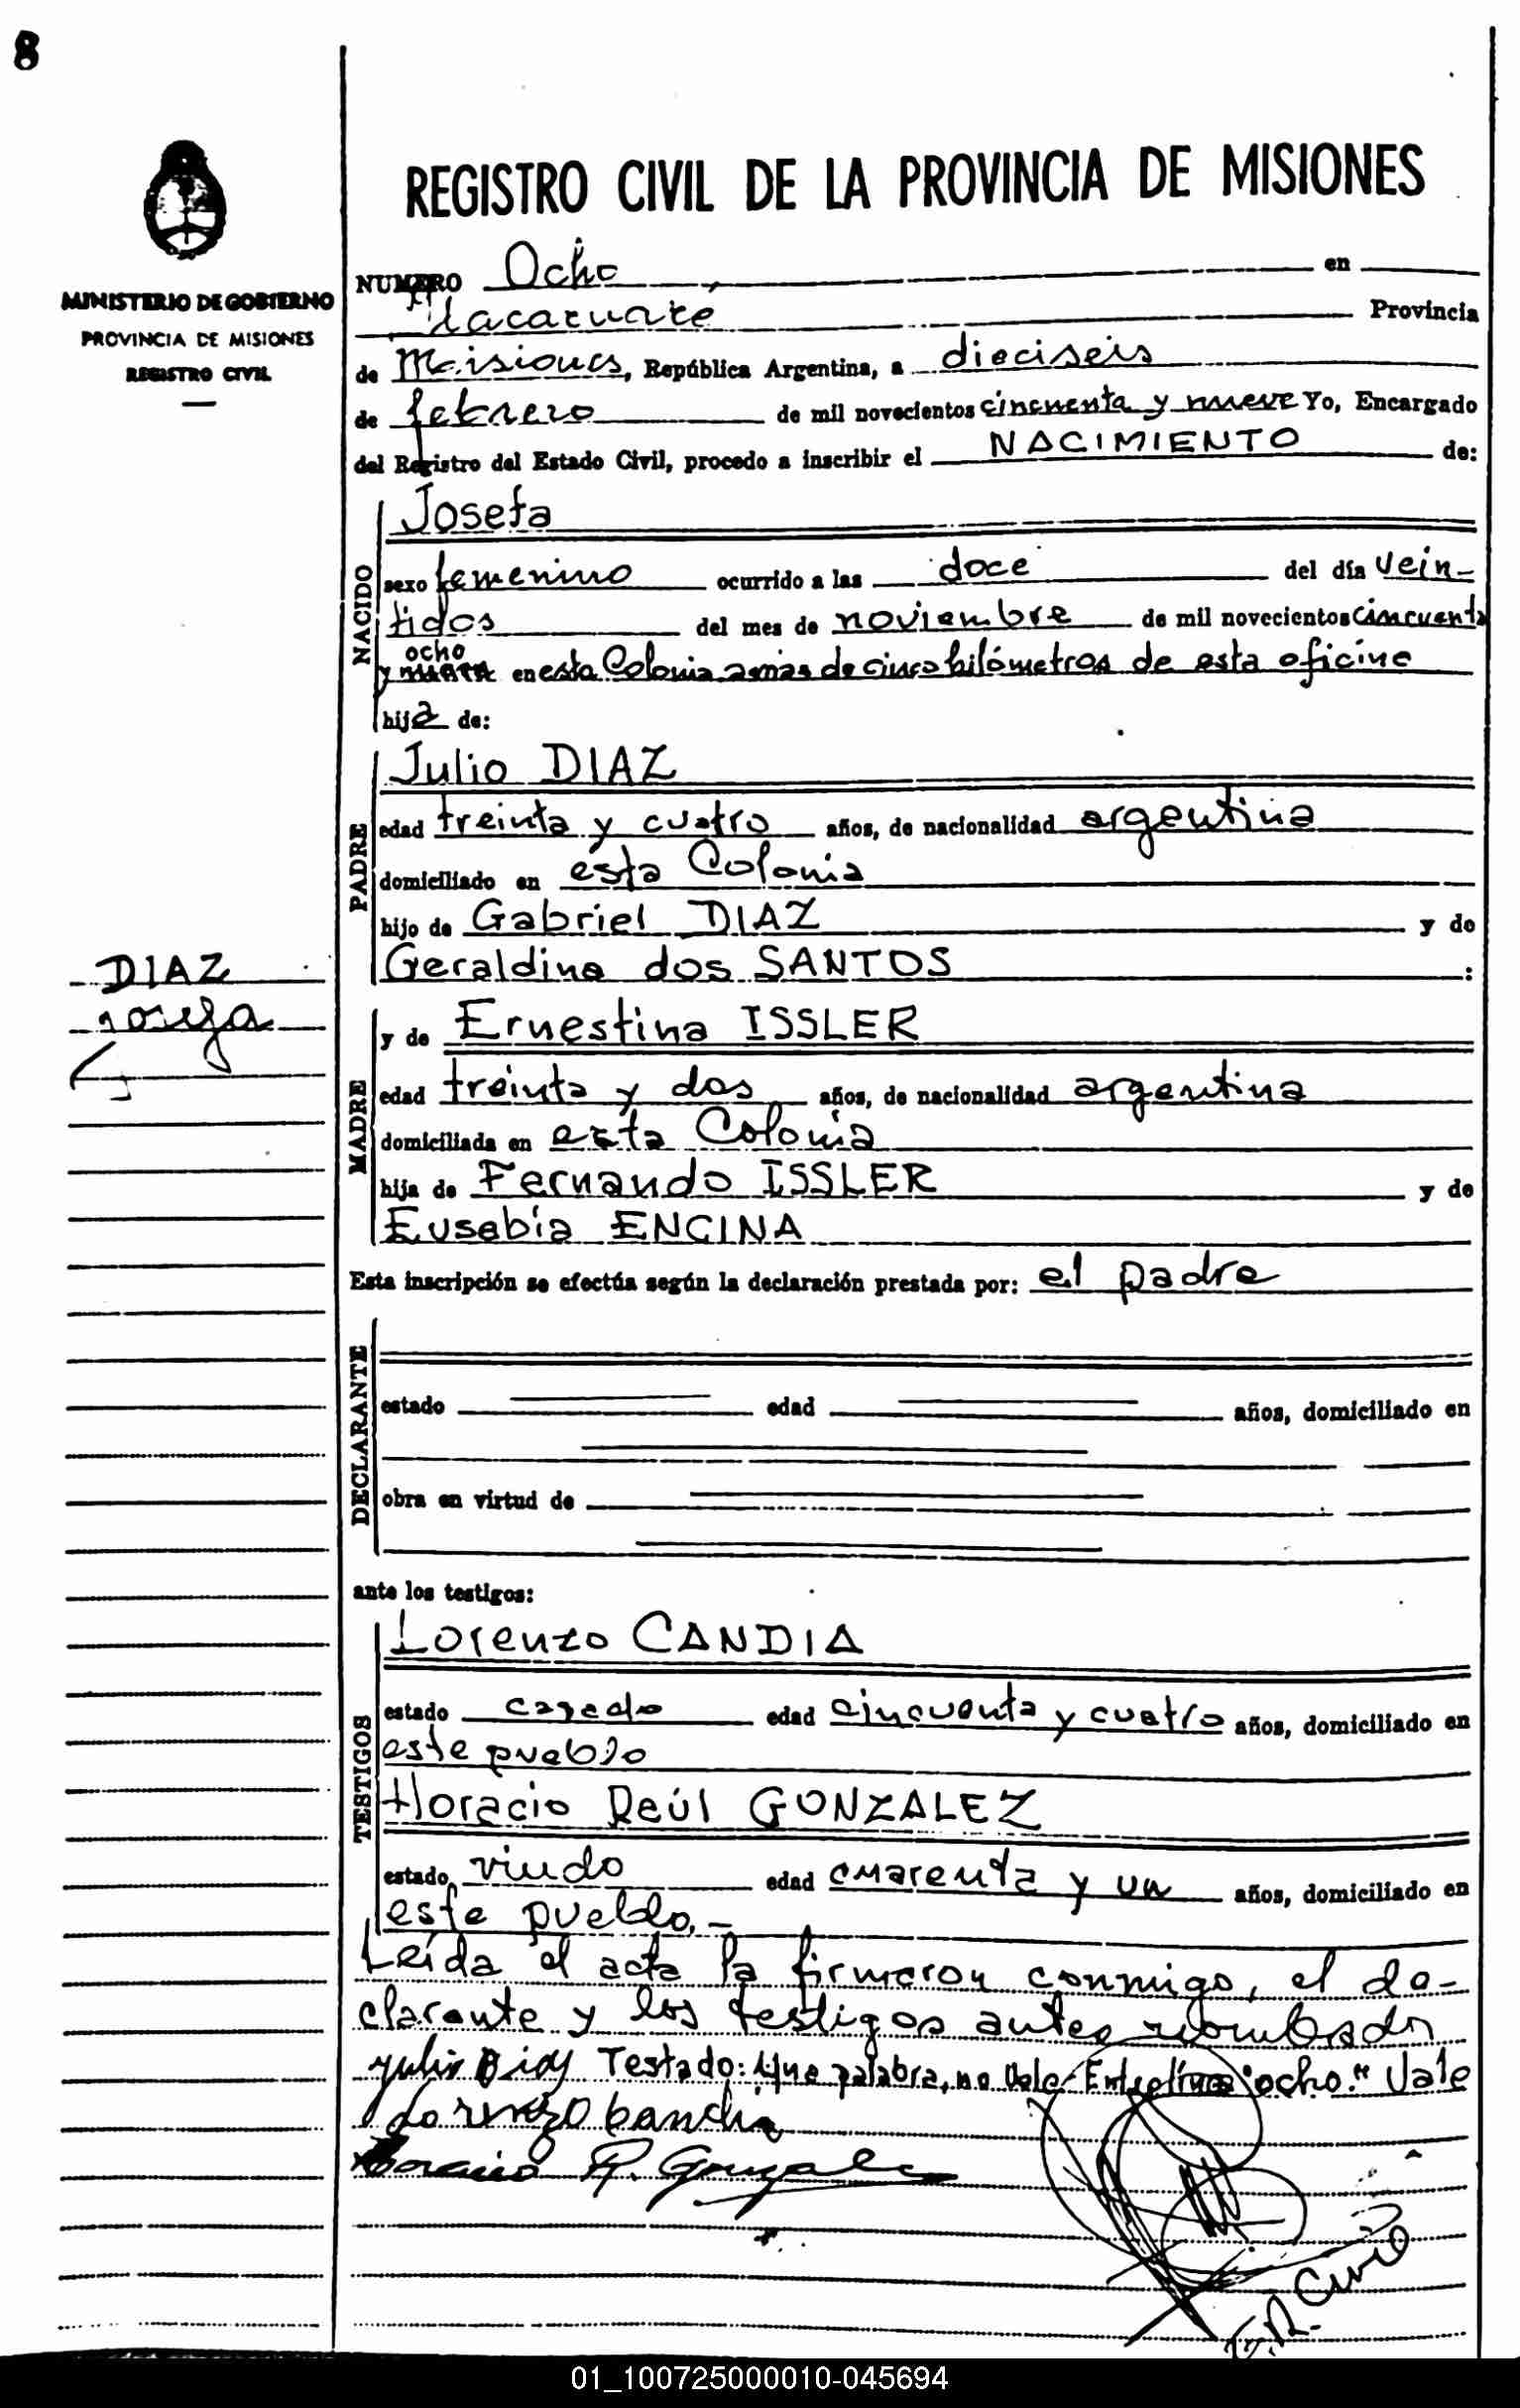 8
MINISTERIO DE GOBIERNO
PROVINCIA DE MISIONES
REGISTRO CIVIL
REGISTRO CIVIL DE LA PROVINCIA DE MISIONES
NUMERO Ocho en
Itacaruaré Provincia
de Misiones, República Argentina, a dieciseis
de febrero de mil novecientos cincuenta y nueve Yo, Encargado
del Registro del Estado Civil, procedo a inscribir el NACIMIENTO de:
NACIDO
Josefa
sexo femenino ocurrido a las doce del día vein-
tidos del mes de noviembre de mil novecientos cincuenta
ocho
y en esta Colonia a mas de cinco kilómetros de esta oficina
hija de:
PADRE
Julio DIAZ
edad treinta y cuatro años, de nacionalidad argentina
domiciliado en esta Colonia
hijo de Gabriel DIAZ y de
Geraldina dos SANTOS :
DIAZ
Josefa
MADRE
y de Ernestina ISSLER
edad treinta y dos años, de nacionalidad argentina
domiciliada en esta Colonia
hija de Fernando ISSLER y de
Eusebia ENCINA
Esta inscripción se efectúa según la declaración prestada por: el padre
DECLARANTE
estado edad años, domiciliado en
obra en virtud de
ante los testigos:
TESTIGOS
Lorenzo CANDIA
estado casado edad cincuenta y cuatro años, domiciliado en
este pueblo
Horacio Raúl GONZALEZ
estado viudo edad cuarenta y un años, domiciliado en
este pueblo.-
Leída el acta la firmaron conmigo, el de-
clarante y los testigos antes nombrados
Julio Diaz Testado: Una palabra, no Vale Entrelínea "ocho." Vale
Lorenzo Candia
Horacio R. Gonzalez
01_100725000010-045694